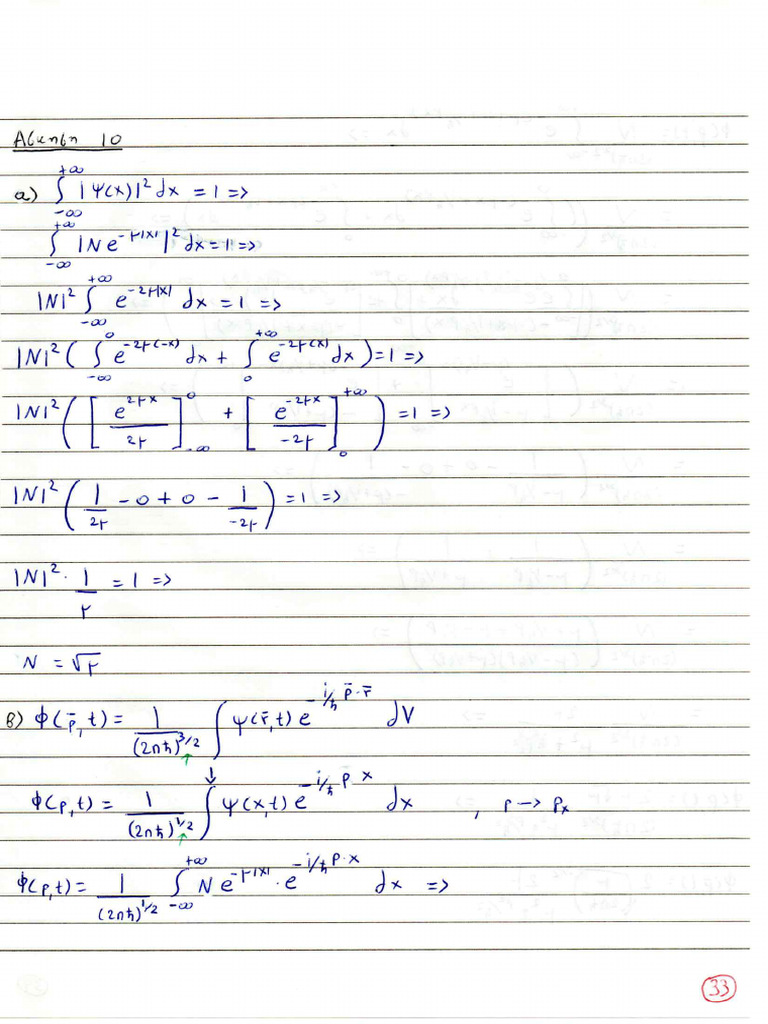 Άσκηση 10
α) ∫_{-∞}^{+∞} |Ψ(x)|² dx = 1 =>
∫_{-∞}^{+∞} |N e^{-μ|x|}|² dx = 1 =>
|N|² ∫_{-∞}^{+∞} e^{-2μ|x|} dx = 1 =>
|N|² ( ∫_{-∞}^{0} e^{-2μ(-x)} dx + ∫_{0}^{+∞} e^{-2μ(x)} dx ) = 1 =>
|N|² ( [ e^{2μx} / 2μ ]_{-∞}^{0} + [ e^{-2μx} / -2μ ]_{0}^{+∞} ) = 1 =>
|N|² ( 1/2μ - 0 + 0 - 1/-2μ ) = 1 =>
|N|² · 1/μ = 1 =>
N = √μ
β) Φ(p̄,t) = 1/(2πħ)^{3/2} ∫ ψ(r̄,t) e^{-i/ħ p̄·r̄} dV
Φ(p,t) = 1/(2πħ)^{1/2} ∫ ψ(x,t) e^{-i/ħ p·x} dx , p → pₓ
Φ(p,t) = 1/(2πħ)^{1/2} ∫_{-∞}^{+∞} N e^{-μ|x|} · e^{-i/ħ p·x} dx =>
33